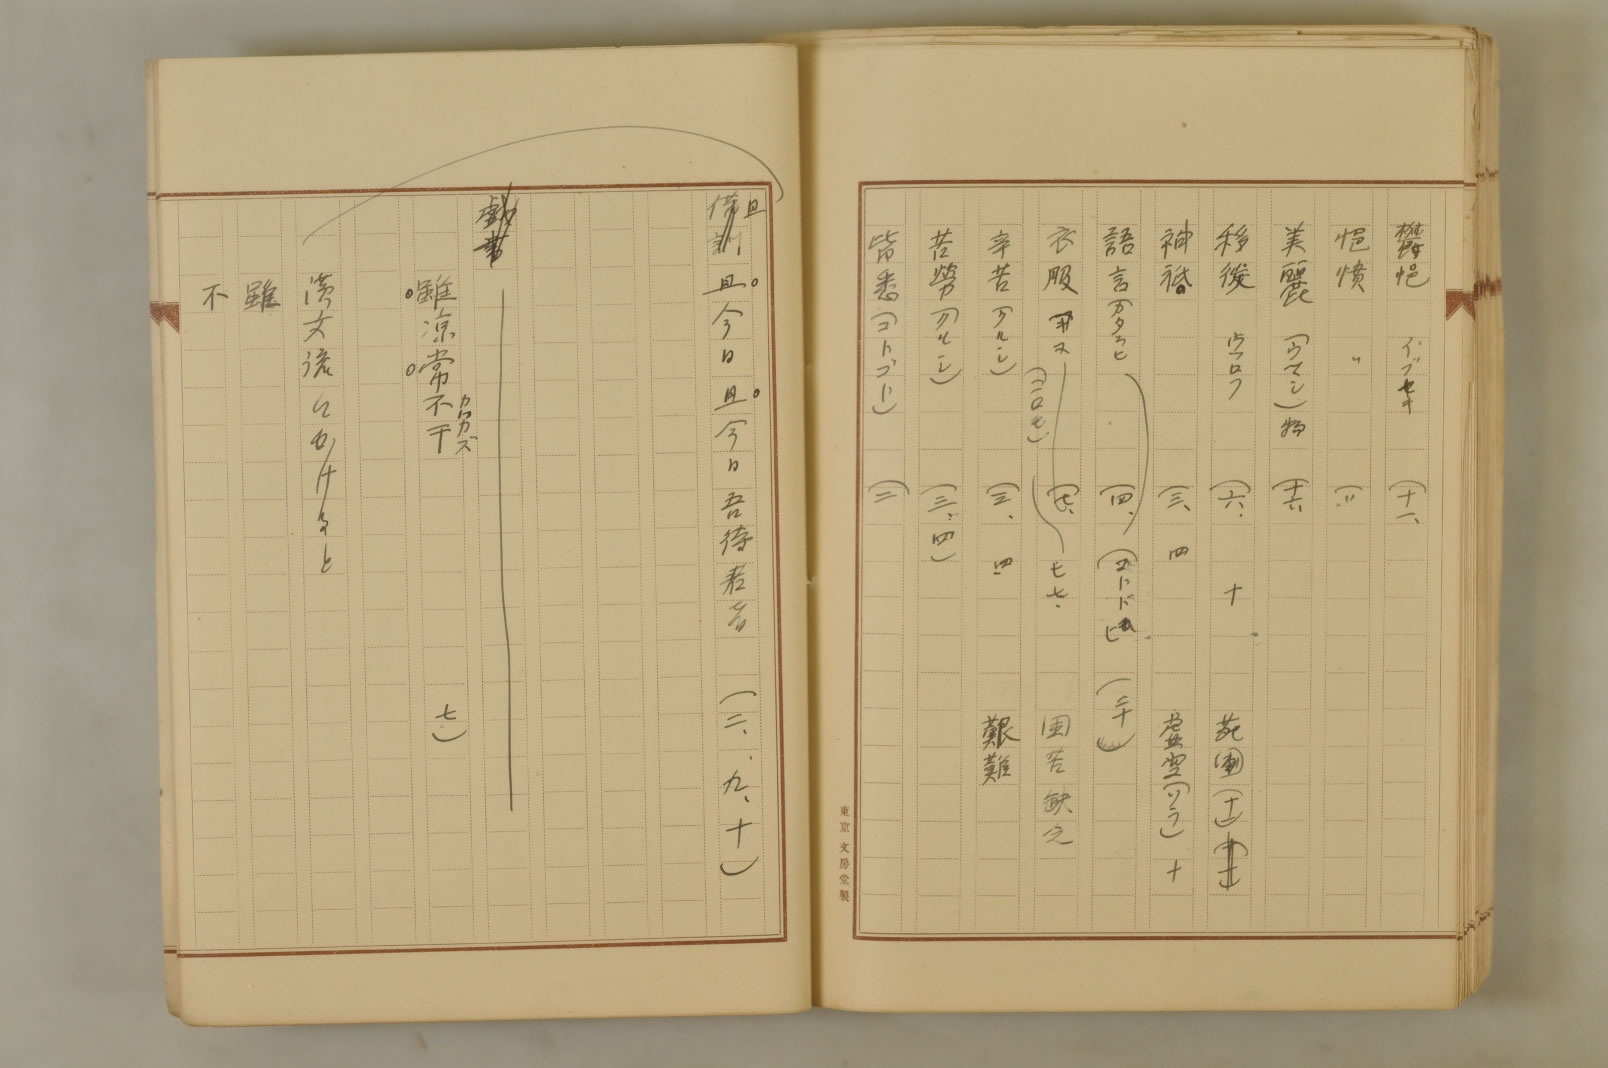 鬱悒 イブセキ (十一、
悒憤 〃 (〃
美麗 (ウマシ)物 (十六
移徙 ウツロフ (六、 十 苑圃(十七)
神祇 (三、四 虚空(ソラ) 十
語言(カタラヒ (四、 (コトドヒ (二十)
衣服 (コロモ) (七、 七七、 困苦缺乏
辛苦(クルシ) (三、四 艱難
苦勞(クルシ) (三、四)
皆悉(コトゴト) (二
東京 文房堂製
借訓 且
且今日且今日吾待君者 (二、九、十)
戯書
雖涼常不干 カワカズ 七)
漢文流にかけると
雖
不